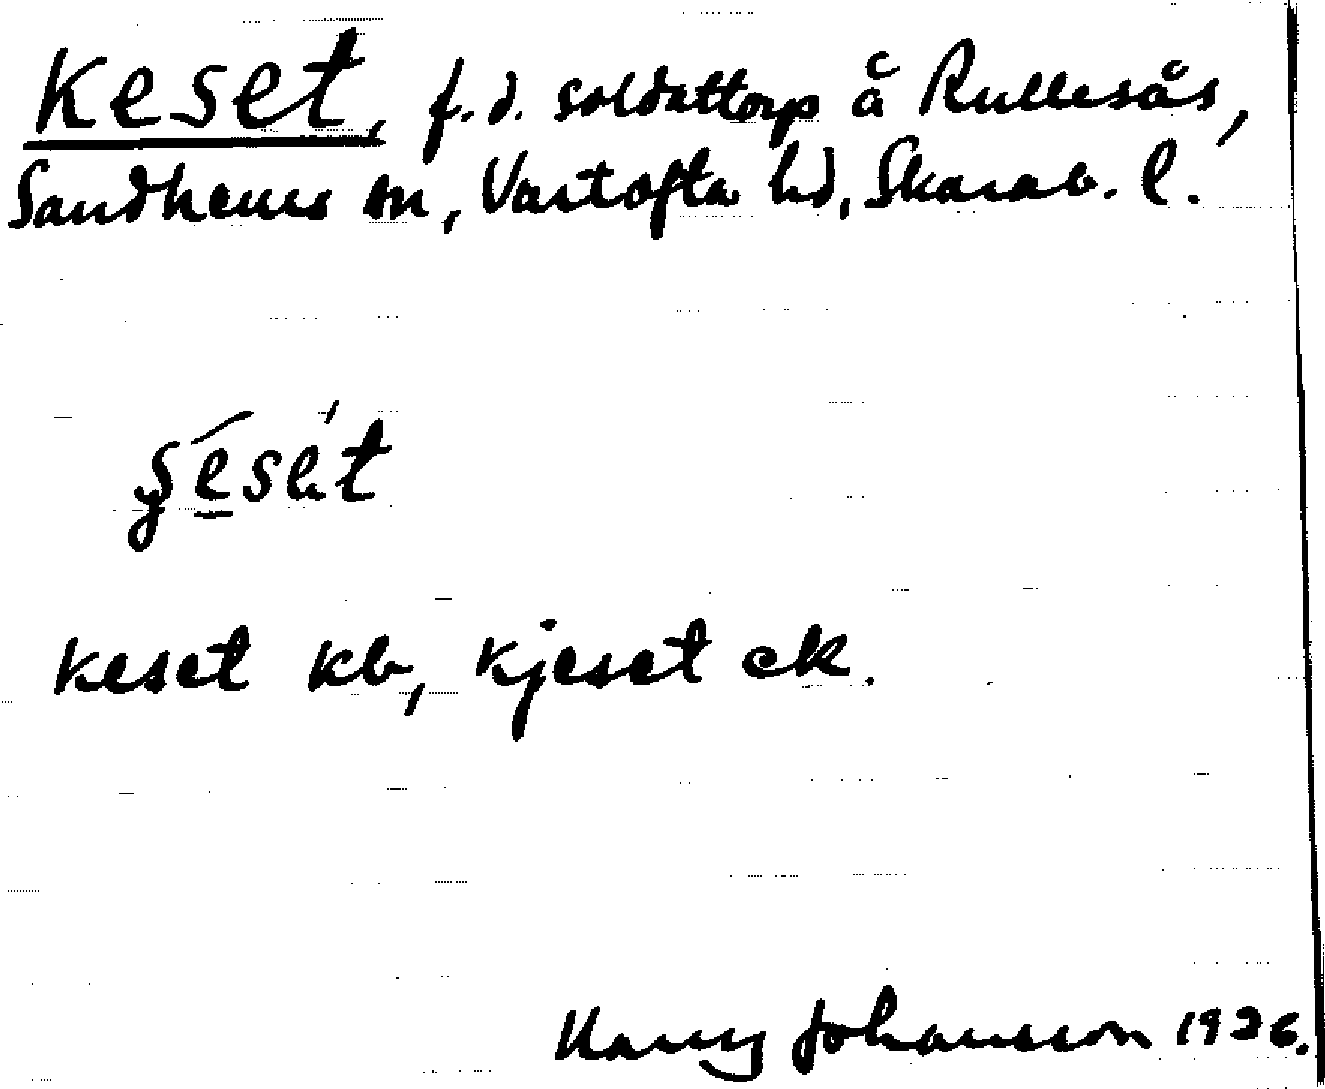 Keset, f.d. soldattorp å Rullesås,
Sandhems sn, Vartofta hd, Skarab. l.
keset kb, kjeset ek.
Harry Johansson 1926.